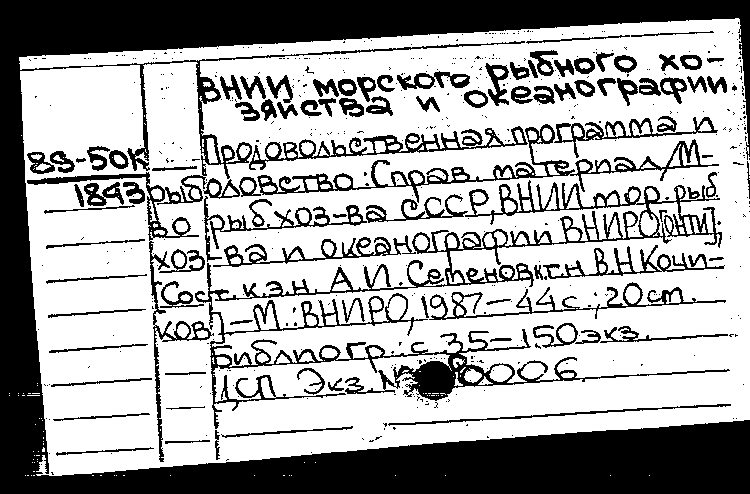 ВНИИ морского рыбного хо-
зяйства и океанографии.
Продовольственная программа и
88-50К
1843
рыболовство: Справ. материал/М-
во рыб. хоз-ва СССР, ВНИИ мор. рыб
хоз-ва и океанографии ВНИРО[ОНТИ];
[Сост. к.э.н. А.И. Семенов, к.т.н В.Н Кочи-
ков]-М.: ВНИРО, 1987.-44с.; 20см.
Библиогр.: с 35-150экз.
ДСП. Экз. № 0006